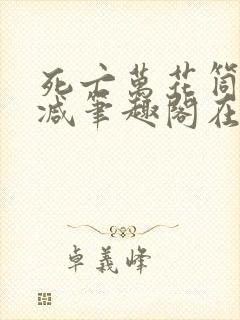 死亡萬花筒
減筆趣閣在
卓義峰